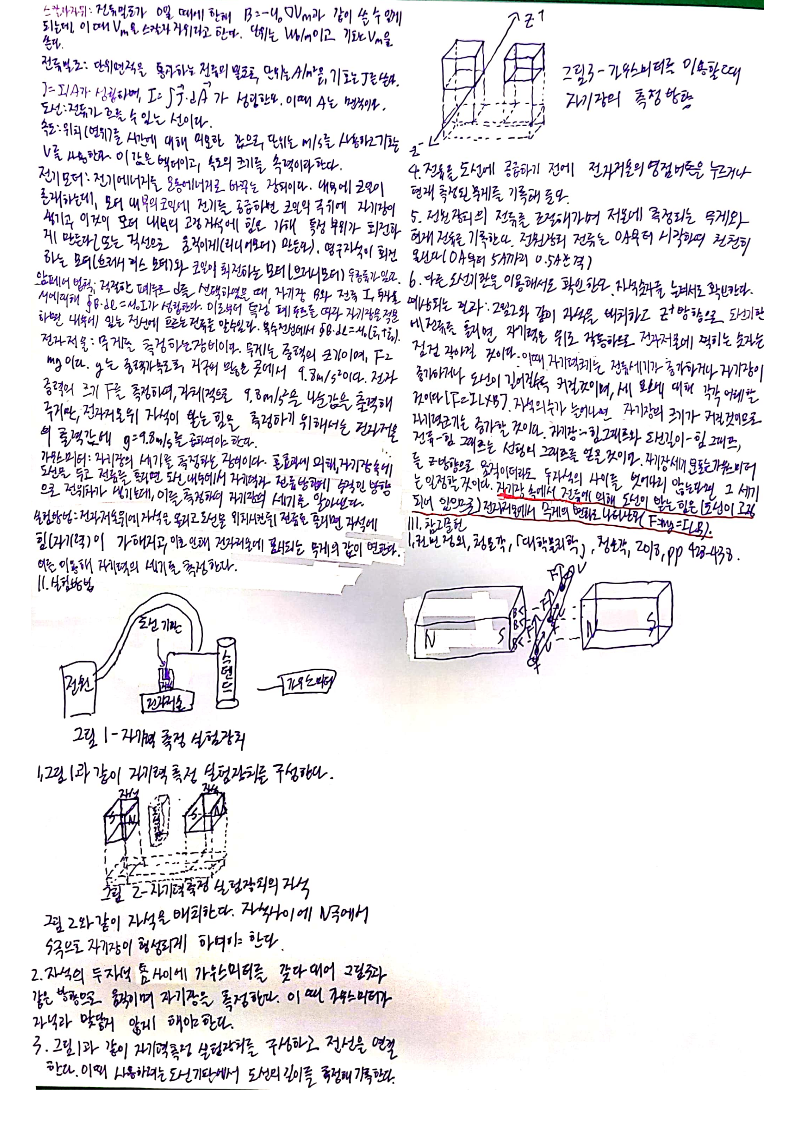 스칼라자위: 전류밀도가 0일 때에 한해 B=-μ₀∇Vm과 같이 쓸 수 있게
되는데, 이 때 Vm을 스칼라 자위라고 한다. 단위는 Wb/m이고 기호는 Vm을
쓴다.
전류밀도: 단위면적을 통과하는 전류의 밀도로, 단위는 A/m²을, 기호는 J를 쓴다.
J=I/A가 성립하며, I=∫J·dA가 성립한다. 이때 A는 면적이다.
도선: 전류가 흐를 수 있는 선이다.
속도: 위치(변위)를 시간에 대해 미분한 값으로, 단위는 m/s를 사용하고 기호는
V를 사용한다. 이 값은 벡터이고, 속도의 크기를 속력이라 한다.
전기모터: 전기에너지를 운동에너지로 바꾸는 장치이다. 내부에 코일이
존재하는데, 모터 내부의 코일에 전기를 공급하면 코일의 주위에 자기장이
생기고 이것이 모터 내부의 고정 자석에 힘을 가해 특정 부위가 회전하
게 만든다(또는 직선으로 움직이게(리니어모터) 만든다). 영구자석이 회전
하는 모터(브러시리스 모터)와 코일이 회전하는 모터(브러시모터) 두종류가 있다.
암페어 법칙: 적절한 폐곡로 dl을 선택하였을 때, 자기장 B와 전류 I,
에 의해 ∮B·dl=μ₀I가 성립한다. 이로부터 특정 폐곡로를 따라 자기장을 적분
하면 내부에 있는 전선에 흐르는 전류를 알 수 있다.
전자저울: 무게를 측정하는 장비이다. 무게는 중력의 크기이며, F=
mg이다. g는 중력가속도로, 지구의 많은 곳에서 9.8m/s²이다. 전자
중력의 크기 F를 측정하여, 자체적으로 9.8m/s²을 나눈값을 출력해
주지만, 전자저울 위 자석이 받는 힘을 측정하기 위해서는 전자저울
의 출력값에 g=9.8m/s²를 곱하여야 한다.
가우스미터: 자기장의 세기를 측정하는 장비이다. 홀효과에 의해, 자기장 속에
도선을 두고 전류를 흘리면 도선 내부에서 자기력과 전류방향에 수직인 방향
으로 전위차가 생기는데, 이를 측정하여 자기장의 세기를 알아낸다.
실험방법: 전자저울위에 자석을 올리고 도선을 위치시킨뒤 전류를 흘리면 자석에
힘(자기력)이 가해지고, 이로 인해 전자저울에 표시되는 무게의 값이 변한다.
이를 이용해 자기력의 세기를 측정한다.
II. 실험방법
도선 기판
전원
자석
전자저울
스탠드
가우스미터
그림 1-자기력 측정 실험장치
1. 그림 1과 같이 자기력 측정 실험장치를 구성한다.
자석
자석
S
N
S
N
그림 2-자기력 측정 실험장치의 자석
그림 2와 같이 자석을 배치한다. 자석사이에 N극에서
S극으로 자기장이 형성되게 하여야 한다.
2. 자석의 두 자석 틈 사이에 가우스미터를 갖다 대어 그림 3과
같은 방향으로 움직이며 자기장을 측정한다. 이 때 가우스미터가
자석과 맞닿게 않게 해야 한다.
3. 그림 1과 같이 자기력 측정 실험장치를 구성하고 전선을 연결
한다. 이때 사용하려는 도선기판에서 도선의 길이를 측정해 기록한다.
Z+
Z-
그림 3-가우스미터를 이용할 때
자기장의 측정 방향
4. 전류를 도선에 공급하기 전에 전자저울의 영점버튼을 누르거나
현재 측정된 무게를 기록해 둔다.
5. 전원장치의 전류를 조절해가며 저울에 측정되는 무게와
현재 전류를 기록한다. 전원장치 전류는 0A부터 시작하여 천천히
올린다(0A부터 5A까지 0.5A간격)
6. 다른 도선기판을 이용해서도 확인한다. 자석숫자를 늘려서도 확인한다.
예상되는 결과: 그림 2와 같이 자석을 배치하고 Z+방향으로 도선기판
에 전류를 흘리면, 자기력은 위로 작용하므로 전자저울에 찍히는 숫자는
점점 작아질 것이다. 이때 자기력의 크기는 전류세기가 증가하거나 자기장이
증가하거나 도선이 길어질수록 커질것이며, 세 요인에 대해 각각 비례할
것이다[F=IL×B]. 자석의 수가 늘어나면 자기장의 크기가 커질것이므로
자기력크기는 증가할 것이다. 자기장-힘 그래프와 도선길이-힘 그래프,
전류-힘 그래프는 선형의 그래프를 얻을 것이다. 자기장세기 또한
Z방향으로 움직이더라도 두자석의 사이를 벗어나지 않는다면 그 세기
는 일정할 것이다. 자기장 속에서 전류에 의해 도선이 받는 힘은 (도선이 고정
되어 있으므로) 전자저울에서 무게의 변화로 나타난다(F=mg=ILB).
III. 참고문헌
1. 청문각, 「대학물리학」, 청문각, 2018, pp 428-438.
N
S
N
S